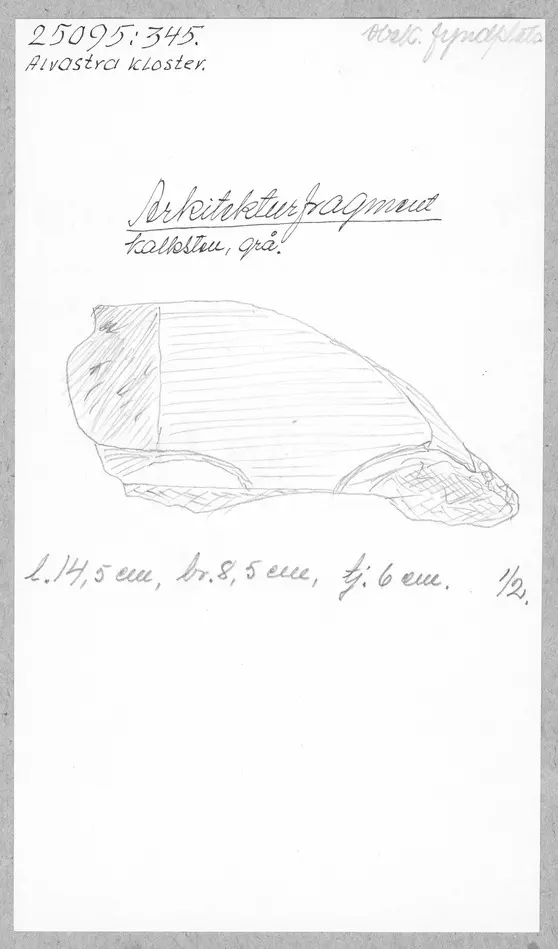 25095:345.
Alvastra kloster.
Obek. fyndplats
Arkitekturfragment
kalksten, grå.
l. 14,5 cm, br. 8,5 cm, tj. 6 cm. 1/2.